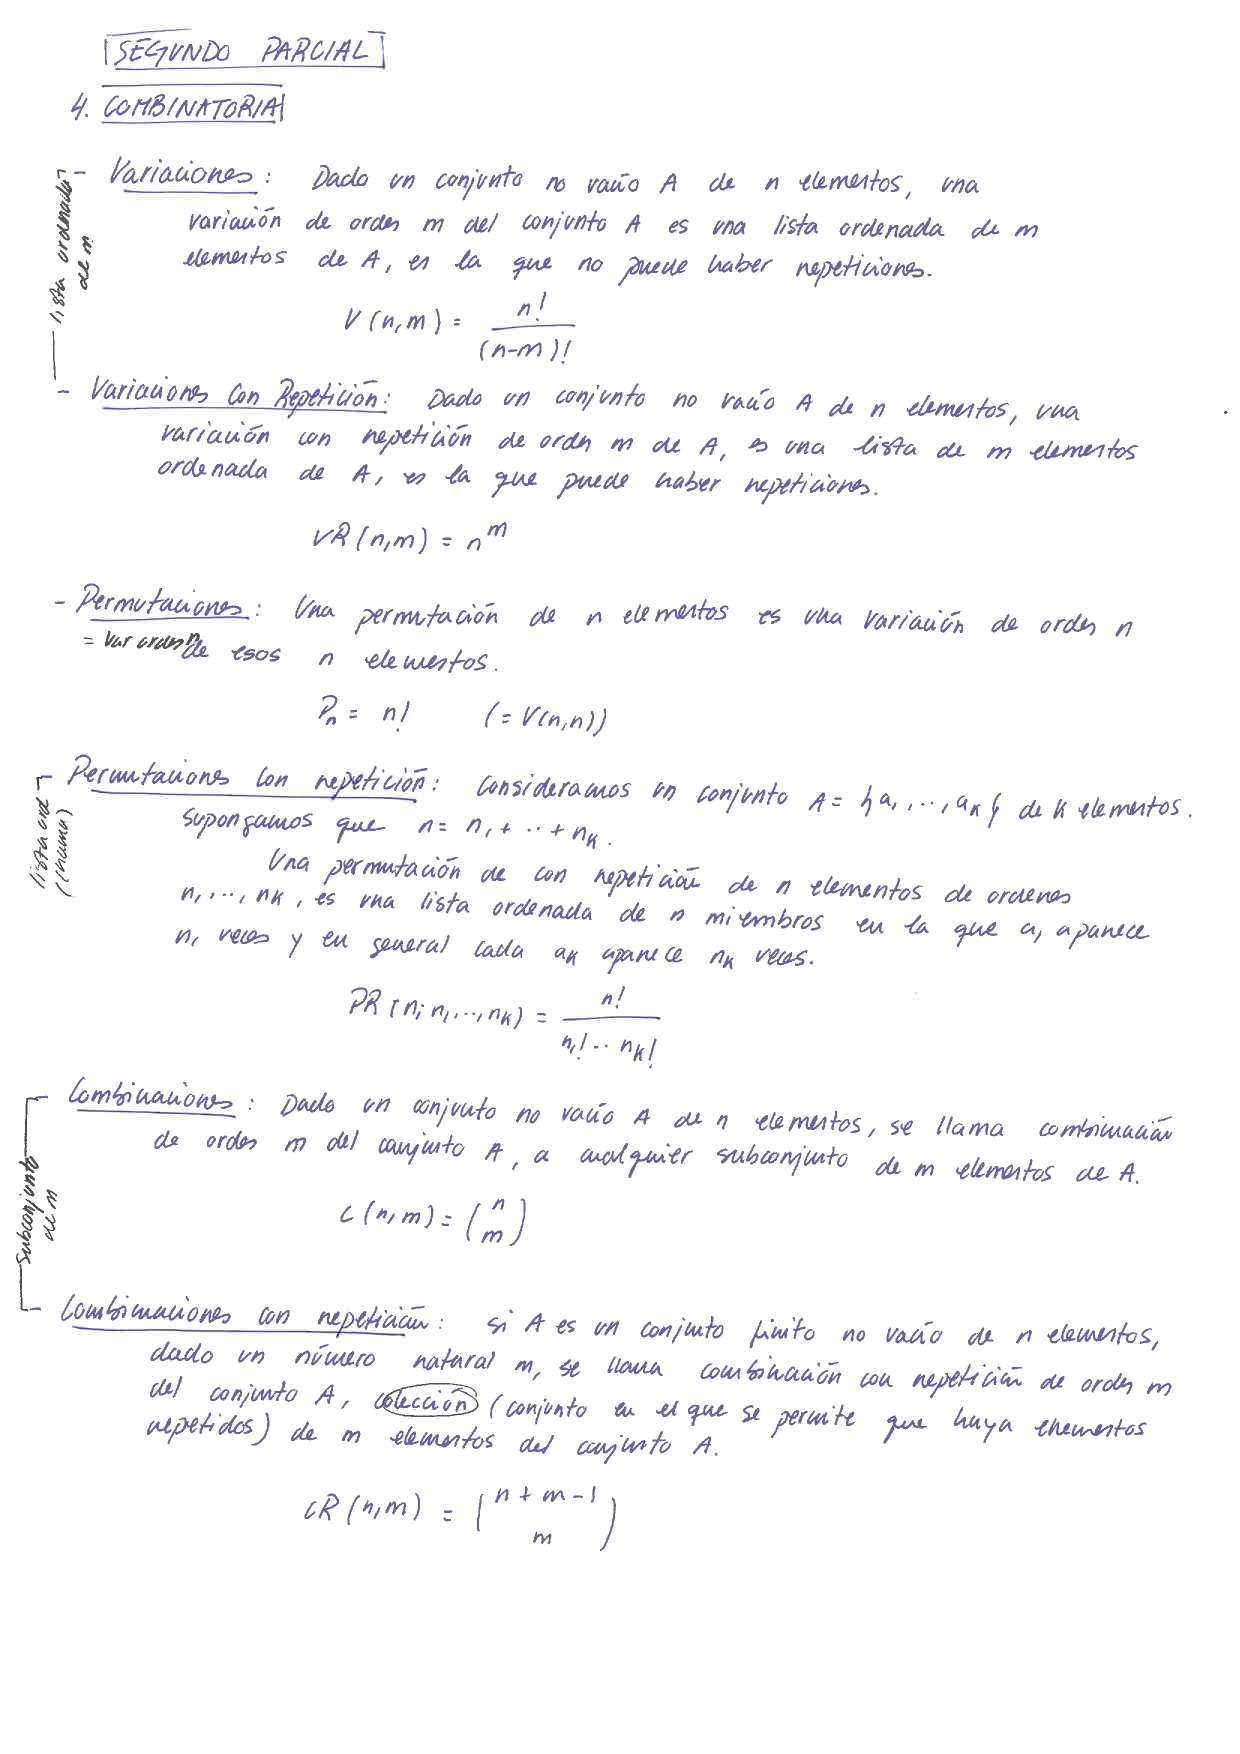 SEGUNDO PARCIAL
4. COMBINATORIA
lista ordenada de m
- Variaciones: Dado un conjunto no vacío A de n elementos, una
variación de orden m del conjunto A es una lista ordenada de m
elementos de A, en la que no puede haber repeticiones.
V(n,m) = n! / (n-m)!
- Variaciones con Repetición: Dado un conjunto no vacío A de n elementos, una
variación con repetición de orden m de A, es una lista de m elementos
ordenada de A, en la que puede haber repeticiones.
VR(n,m) = n^m
- Permutaciones: Una permutación de n elementos es una variación de orden n
= Var orden n
de esos n elementos.
Pn = n! (= V(n,n))
lista ord (chama)
- Permutaciones con repetición: Consideramos un conjunto A = {a1,..,ak} de k elementos.
Supongamos que n = n1 + .. + nk.
Una permutación de con repetición de n elementos de ordenes
n1,..,nk, es una lista ordenada de n miembros en la que a1 aparece
n1 veces y en general cada ak aparece nk veces.
PR(n; n1,..,nk) = n! / n1! .. nk!
Subconjunto de m
- Combinaciones: Dado un conjunto no vacío A de n elementos, se llama combinación
de orden m del conjunto A, a cualquier subconjunto de m elementos de A.
C(n,m) = (n m)
- Combinaciones con repetición: si A es un conjunto finito no vacío de n elementos,
dado un número natural m, se llama combinación con repetición de orden m
del conjunto A, colección (conjunto en el que se permite que haya elementos
repetidos) de m elementos del conjunto A.
CR(n,m) = (n+m-1 m)